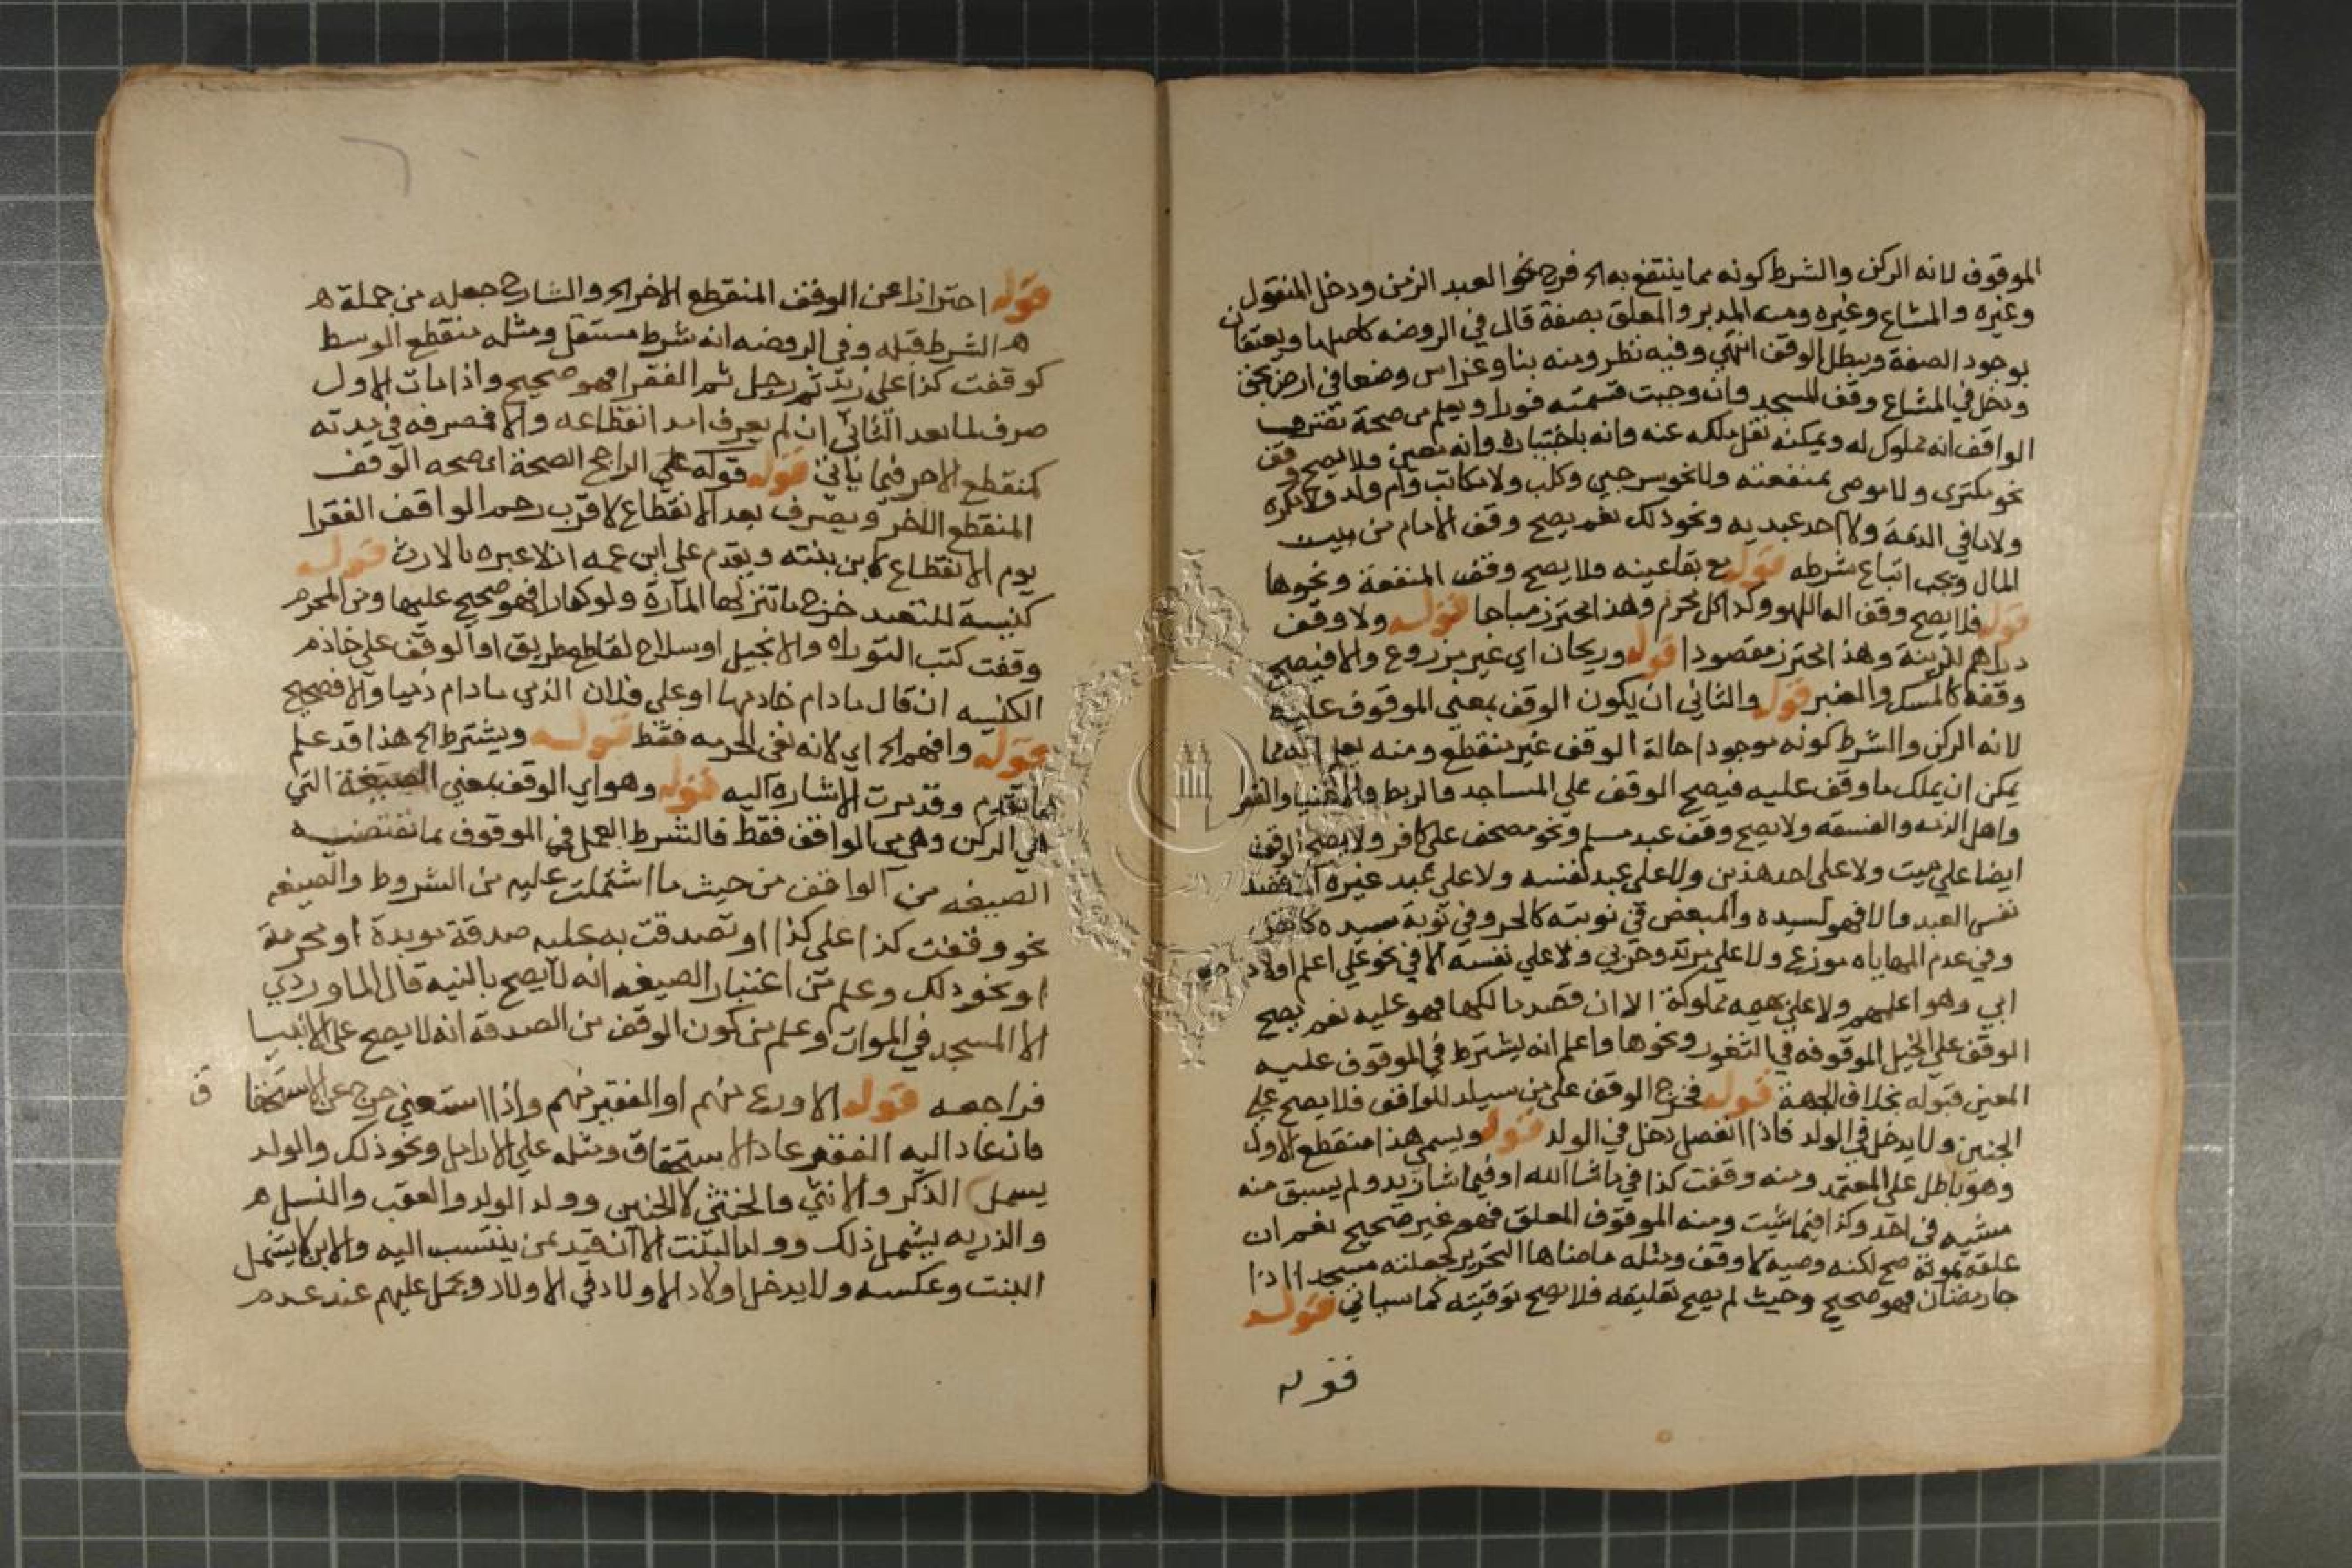 الموقوف لانه الركن والشرط كونه مما ينتفع به الخ فرج نحو العبد الزمن ودخل المنقول
وغيره والمشاع وغيره ومنه المدبر والمعلق بصفة قال في الروضه كاصلها ويعتقان
بوجود الصفة ويبطل الوقف انتهي وفيه نظر ومنه بنا وغراس وضعا في ارض بحق
ودخل في المشاع وقف المسجد وان وجبت قسمته فورا ويعلم من صحة تصرف
الواقف انه مملوك له ويمكنه نقل ملكه عنه وانه باختياره وانه معين فلا يصح وقف
نحو مكتري ولا موصي بمنفعته ولا نحو سرجين وكلب ولا مكاتب وام ولد ولا مكره
ولا ما في الذمة ولا احد عبديه ونحو ذلك نعم يصح وقف الامام من بيت
المال ويجب اتباع شرطه قوله مع بقا عينه فلا يصح وقف المنفعة ونحوها
قوله فلا يصح وقف الة اللهو وكذا كل محرم وهذا محترز مباحا قوله ولا وقف
دراهم للزينة وهذا محترز مقصودا قوله وريحان اي غير مزروع والا فيصح
وقفه كالمسك والعنبر قوله والثاني ان يكون الوقف بمعني الموقوف عليه
لانه الركن والشرط كونه موجودا حالة الوقف غير منقطع ومنه يعلم انه مما
يمكن ان يملك ما وقف عليه فيصح الوقف علي المساجد والربط والاغنيا والفقرا
واهل الذمه والفسقه ولا يصح وقف عبد مسلم ونحو مصحف علي كافر ولا يصح الوقف
ايضا علي ميت ولا علي احد هذين ولا علي عبد لنفسه ولا علي عبد غيره ان قصد
نفس العبد والا فهو لسيده والمبعض في نوبته كالحر وفي نوبة سيده كالقن
وفي عدم المهاياه يوزع ولا علي مرتد وحربي ولا علي نفسه الا في نحو علي اعلم اولاد
ابي وهو اعلمهم ولا علي بهيمه مملوكة الا ان قصد مالكها فهو عليه نعم يصح
الوقف علي الخيل الموقوفه في الثغور ونحوها واعلم انه يشترط في الموقوف عليه
المعين قبوله بخلاف الجهة قوله فخرج الوقف علي من سيولد للواقف فلا يصح علي
الجنين ولا يدخل في الولد فاذا انفصل دخل في الولد قوله ويسمي هذا منقطع الاول
وهو باطل علي المعتمد ومنه وقفت كذا في ما شا الله او فيما شا زيد ولم يسبق منه
مشيه في احد وكذا فيما شيت ومنه الموقوف المعلق فهو غير صحيح نعم ان
علقه بموته صح لكنه وصيه لا وقف ومثله ما ضاها التحرير كجعلته مسجدا اذا
جا رمضان فهو صحيح وحيث لم يصح تعليقه فلا يصح توقيته كما سياتي قوله
قوله
قوله احترازا عن الوقف المنقطع الاخر الخ والشارح جعله من جملة ه
ه الشرط قبله وفي الروضه انه شرط مستقل ومثله منقطع الوسط
كوقفت كذا علي زيد ثم رجل ثم الفقرا فهو صحيح واذا مات الاول
صرف لما بعد الثاني ان لم يعرف امد انقطاعه والا فمصرفه في مدته
كمنقطع الاخر فيما ياتي قوله قوله علي الراجح الصحة اي صحه الوقف
المنقطع الاخر ويصرف بعد الانقطاع لاقرب رحم الواقف الفقرا
يوم الانقطاع لابن بنته ويقدم علي ابن عمه اذ لا عبره بالارث قوله
كنيسة للتعبد خرج ما تنزلها المارة ولو كفارا فهو صحيح عليها ومن المحرم
وقفت كتب التوراه والانجيل او سلاح لقاطع طريق او الوقف علي خادم
الكنيسه ان قال ما دام خادمها او علي فلان الذمي ما دام ذميا والا فصحيح
قوله وافهم الخ اي لانه نفي الحرمه فقط قوله ويشترط الخ هذا قد علم
مما تقدم وقد مرت الاشاره اليه قوله وهو اي الوقف بمعني الصيغة التي
هي الركن وهي من الواقف فقط فالشرط العمل في الموقوف بما تقتضيه
الصيغه من الواقف من حيث ما اشتملت عليه من الشروط والصيغه
نحو وقفت كذا علي كذا او تصدقت به عليه صدقة موبدة او محرمة
او نحو ذلك وعلم من اعتبار الصيغه انه لا يصح بالنيه قال الماوردي
الا المسجد في الموات وعلم من كون الوقف من الصدقة انه لا يصح علي الانبيا
فراجعه قوله الا ورع منهم او الفقير منهم واذا استغني خرج عن الاستحقا ق
فان عاد اليه الفقر عاد الاستحقاق ومثله علي الارامل ونحو ذلك والولد
يشمل الذكر والانثي والخنثي لا الجنين وولد الولد والعقب والنسل ه
والذريه يشمل ذلك وولد البنت الا ان قيد بمن ينتسب اليه والابن لا يشمل
البنت وعكسه ولا يدخل اولاد الاولاد في الاولاد ويحمل عليهم عند عدم